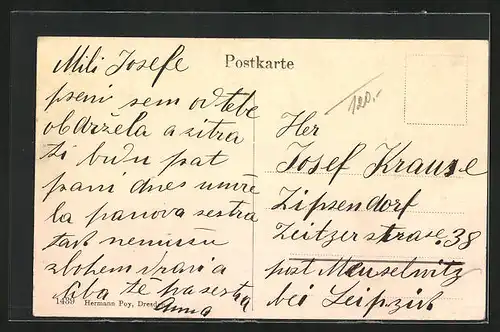 Postkarte
Mili Josefe
pseni sem od tebe
obdržela a zitra
ti budu psat
pani dnes umře
la panova sestra
tak nemussu
zbohem zdravi a
liba te sestra
Anna
120.-
Her
Josef Krause
Zipsendorf
Zeitzerstrase 38
post Meuselwitz
bei Leipzich
1439 Hermann Poy, Dresden